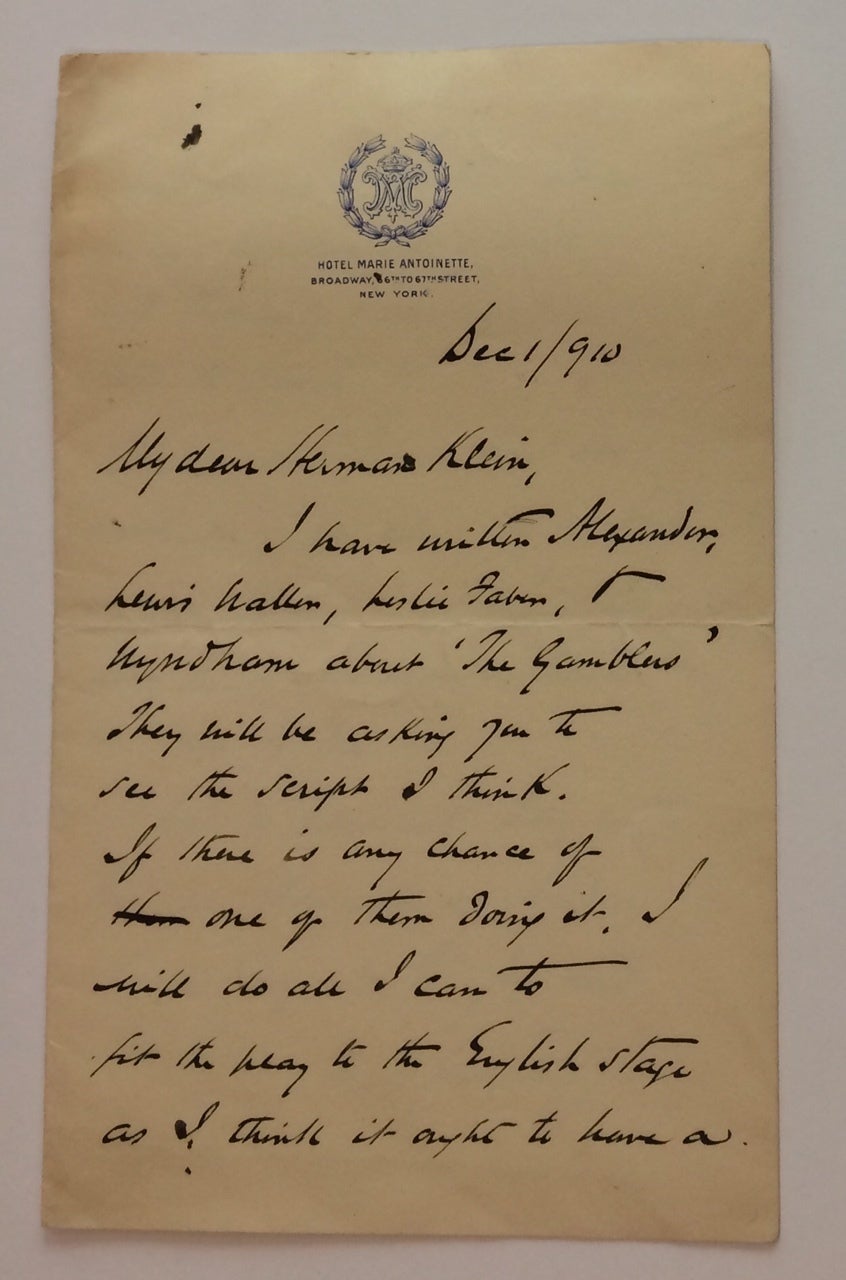 M
HOTEL MARIE ANTOINETTE,
BROADWAY, 66TH TO 67TH STREET,
NEW YORK.
Dec 1/910
My dear Herman Klein,
I have written Alexander,
Lewis Waller, Leslie Faber, &
Wyndham about 'The Gamblers'
They will be asking you to
see the script I think.
If there is any chance of
them one of them doing it, I
will do all I can to
fit the play to the English stage
as I think it ought to have a